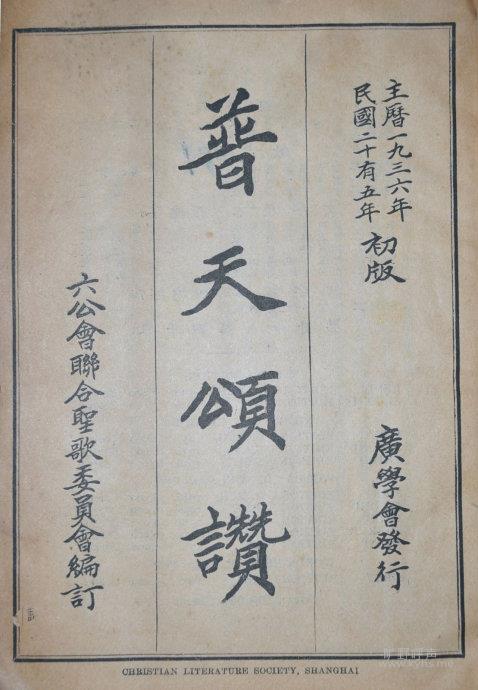 主曆一九三六年
民國二十有五年
初版
廣學會發行
普天頌讚
六公會聯合聖歌委員會編訂
CHRISTIAN LITERATURE SOCIETY, SHANGHAI
旷野呼声